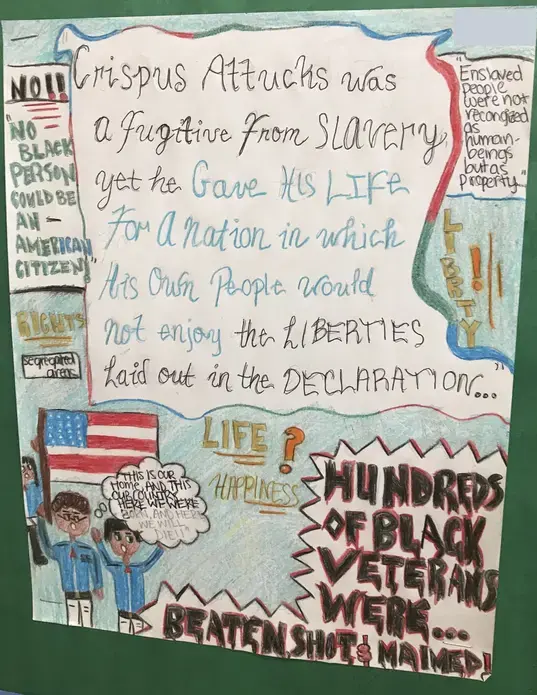 Crispus Attucks was
a fugitive from Slavery,
yet he Gave His LIFE
For A Nation in which
His Own People would
not enjoy the LIBERTIES
Laid out in the DECLARATION..."
NO!!
"NO
BLACK
PERSON
COULD BE
AN -
AMERICAN
CITIZEN"
RIGHTS
segregated
areas
"Enslaved
people
were not
recongized
as
human-
beings
but as
property."
LIBRTY!!
LIFE?
HAPPINESS
"THIS IS OUR
Home, AND THIS
OUR COUNTRY.
HERE WE WERE
BORN, AND HERE
WE WILL
DIE!"
HUNDREDS
OF BLACK
VETERANS
WERE...
BEATEN SHOT & MAIMED!